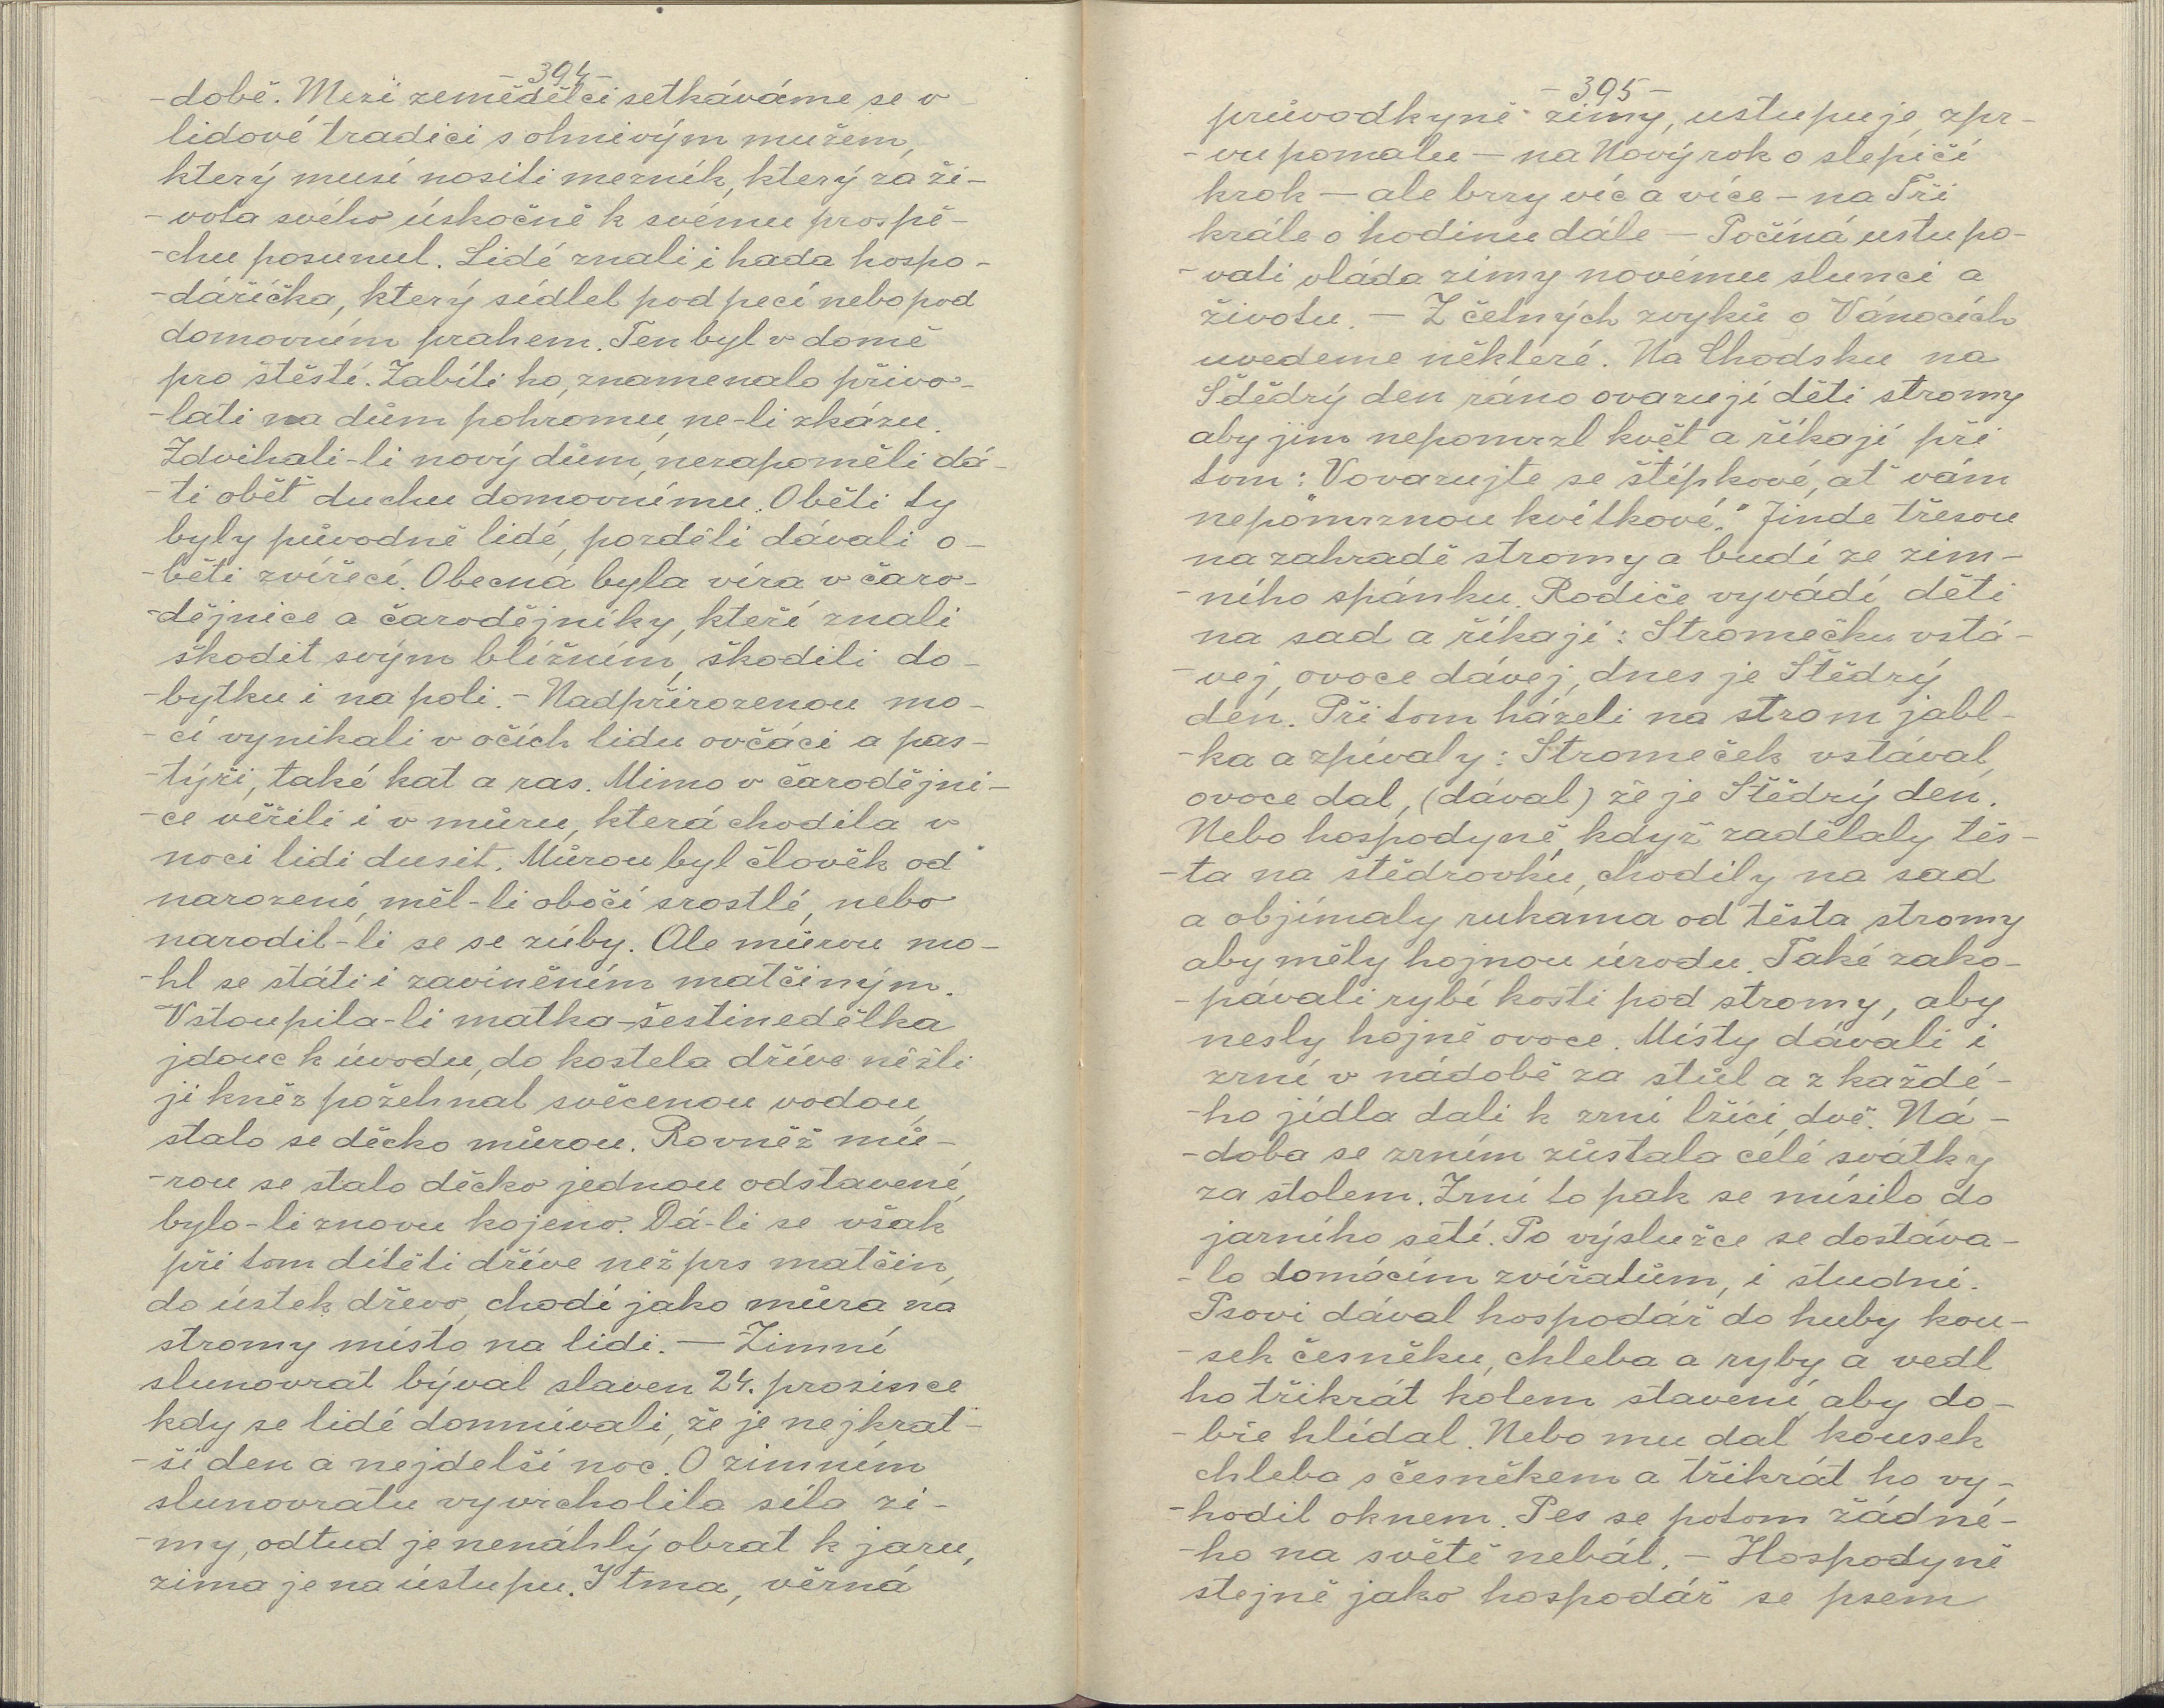 -394-
-době. Mezi zemědělci setkáváme se v
lidové tradici s ohnivým mužem,
který musí nositi mezník, který za ži-
-vota svého úskočně k svému prospě-
-chu posunul. Lidé znali i hada hospo-
-dáříčka, který sídlel pod pecí nebo pod
domovním prahem. Ten byl v domě
pro štěstí. Zabíti ho, znamenalo přivo-
-lati na dům pohromu, ne-li zkázu.
Zdvihali-li nový dům, nezapoměli dá-
-ti oběť duchu domovnímu. Oběti ty
byly původně lidé, pozděli dávali o-
-běti zvířecí. Obecná byla víra v čaro-
-dějnice a čarodějníky, kteří znali
škodit svým bližním, škodili do-
-bytku i na poli. - Nadpřirozenou mo-
-cí vynikali v očích lidu ovčáci a pas-
-týři, také kat a ras. Mimo v čarodějni-
-ce věřili i v můru, která chodila v
noci lidi dusit. Můrou byl člověk od
narození, měl-li obočí srostlé, nebo
narodil-li se se zúby. Ale můrou mo-
-hl se státi i zaviněním matčiným.
Vstoupila-li matka-šestinedělka
jdouc k úvodu, do kostela dříve něžli
ji kněz požehnal svěcenou vodou,
stalo se děcko můrou. Rovněž mů-
-rou se stalo děcko jednou odstavené,
bylo-li znovu kojeno. Dá-li se však
při tom dítěti dříve než prs matčin,
do ústek dřevo, chodí jako můra na
stromy místo na lidi. — Zimní
slunovrat býval slaven 24. prosince
kdy se lidé domnívali, že je nejkrat-
-ší den a nejdelší noc. O zimním
slunovratu vyvrcholila síla zi-
-my, odtud je nenáhlý obrat k jaru,
zima je na ústupu. I tma, věrná
-395-
průvodkyně zimy, ustupuje, zpr-
-vu pomalu — na Nový rok o slepičí
krok — ale brzy víc a více - na Tři
krále o hodinu dále — Počíná ustupo-
-vati vláda zimy novému slunci a
životu. — Z četných zvyků o Vánocích
uvedeme některé. Na Chodsku na
Šdědrý den ráno ovazují děti stromy
aby jim nepomrzl květ a říkají při
tom: Vovazujte se štípkové, ať vám
nepomrznou kvítkové." Jinde třesou
na zahradě stromy a budí ze zim-
-ního spánku. Rodiče vyvádí děti
na sad a říkají: Stromečku vstá-
-vej, ovoce dávej, dnes je Štědrý
den. Při tom házeli na strom jabl-
-ka a zpívaly: Stromeček vstával,
ovoce dal, (dával) že je Štědrý den.
Nebo hospodyně, když zadělaly těs-
-ta na štědrovku, chodily na sad
a objímaly rukama od těsta stromy
aby měly hojnou úrodu. Také zako-
-pávali rybí kosti pod stromy, aby
nesly hojně ovoce. Místy dávali i
zrní v nádobě za stůl a z každé-
-ho jídla dali k zrní lžíci, dvě. Ná-
-doba se zrním zůstala celé svátky
za stolem. Zrní to pak se mísilo do
jarního setí. Po výslužce se dostáva-
-lo domácím zvířatům, i studni.
Psovi dával hospodář do huby kou-
-sek česněku, chleba a ryby a vedl
ho třikrát kolem stavení, aby do-
-bře hlídal. Nebo mu dal kousek
chleba s česněkem a třikrát ho vy-
-hodil oknem. Pes se potom žádné-
-ho na světě nebál. - Hospodyně
stejně jako hospodář se psem